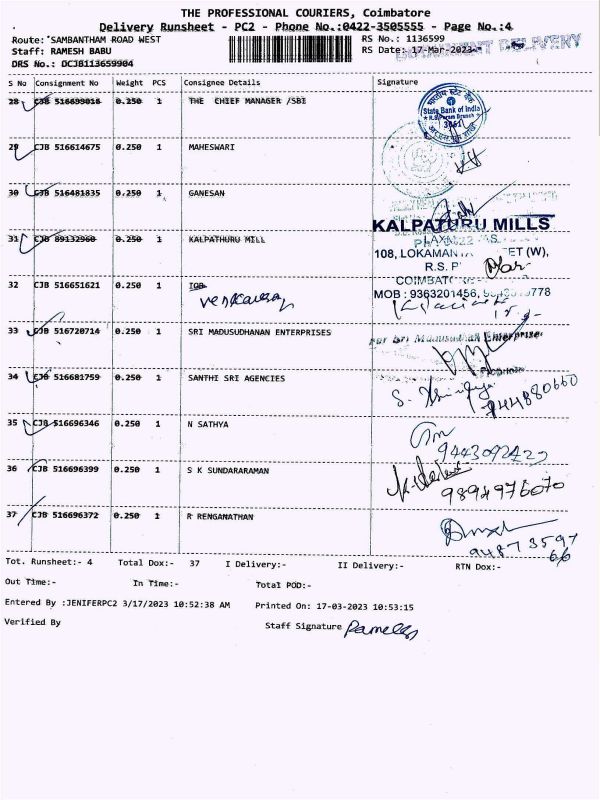 THE PROFESSIONAL COURIERS, Coimbatore
Delivery Runsheet - PC2 - Phone No.:0422-3505555 - Page No.:4
Route: SAMBANTHAM ROAD WEST
RS No.: 1136599
Staff: RAMESH BABU
RS Date: 17-Mar-2023
DELIVERY
DRS No.: DCJB113659904
S No Consignment No Weight PCS Consignee Details Signature
28 CJB 516699016 0.250 1 THE CHIEF MANAGER /SBI
State Bank of India
29 CJB 516614675 1 0.250 MAHESWARI
30 CJB 516481835 0.250 1 GANESAN
KALPATHURU MILLS
31 CJB 89132960 0.250 1 KALPATHURU MILL
108, LOKAMAN ET (W),
R.S. P
COIMBAT
MOB : 9363201456, 778
32 CJB 516651621 0.250 1 IOB
33 CJB 516720714 0.250 1 SRI MADUSUDHANAN ENTERPRISES
For Sri Madusudhan Enterprise
34 CJB 516681759 0.250 1 SANTHI SRI AGENCIES
35 CJB 516696346 0.250 1 N SATHYA
36 CJB 516696399 0.250 1 S K SUNDARARAMAN
9894976070
37 CJB 516696372 0.250 1 R RENGANATHAN
94873597
66
Tot. Runsheet:- 4 Total Dox:- 37 I Delivery:- II Delivery:- RTN Dox:-
Out Time:- In Time:- Total POD:-
Entered By :JENIFERPC2 3/17/2023 10:52:38 AM Printed On: 17-03-2023 10:53:15
Verified By Staff Signature